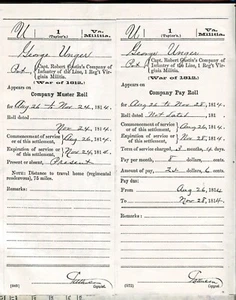 U | 1 | Va. Militia.
(Unger)
George Unger
Pvt., Capt. Robert Gustin's Company of Infantry of the Line, 1 Reg't Virginia Militia.
(War of 1812.)
Appears on
Company Muster Roll
for Aug 26 to Nov 24, 1814.
Roll dated
Nov 24, 1814.
Commencement of service or of this settlement, Aug 26, 1814.
Expiration of service or of this settlement, Nov 24, 1814.
Present or absent, Present
NOTE: Distance to travel home (regimental rendezvous), 75 miles.
Remarks:
Copyist.
U | 1 | Va. Militia.
(Unger)
George Unger
Pvt., Capt. Robert Gustin's Company of Infantry of the Line, 1 Reg't Virginia Militia.
(War of 1812.)
Appears on
Company Pay Roll
for Aug 26 to Nov 28, 1814.
Roll dated Not dated, 181
Commencement of service or of this settlement, Aug 26, 1814.
Expiration of service or of this settlement, Nov 28, 1814.
Term of service charged, 3 months, 4 days.
Pay per month, 8 dollars, cents.
Amount of pay, 24 dollars, 6 cents.
Pay due:
From Aug 26, 1814
To Nov 28, 1814.
Remarks:
Copyist.